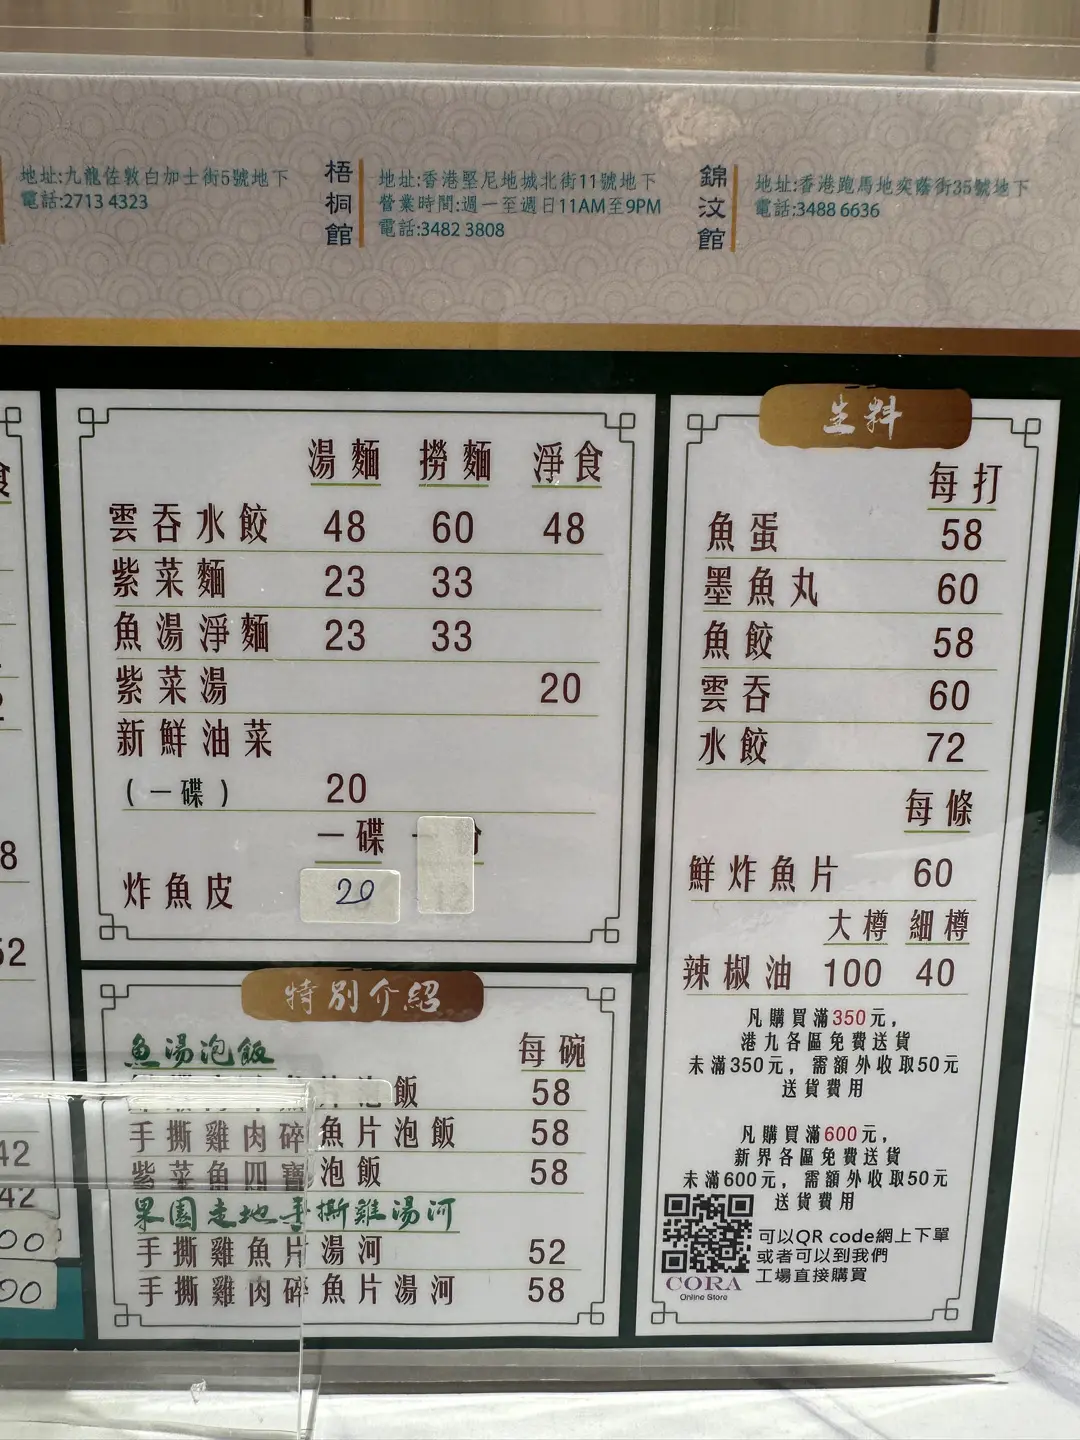 地址:九龍佐敦白加士街5號地下
電話:2713 4323
梧桐館
地址:香港堅尼地城北街11號地下
營業時間:週一至週日11AM至9PM
電話:3482 3808
錦汶館
地址:香港跑馬地奕蔭街35號地下
電話:3488 6636
食
8
52
42
42
00
90
湯麵 撈麵 淨食
雲吞水餃 48 60 48
紫菜麵 23 33
魚湯淨麵 23 33
紫菜湯 20
新鮮油菜
(一碟) 20
一碟
炸魚皮 20
特別介紹
魚湯泡飯 每碗
片泡飯 58
手撕雞肉碎魚片泡飯 58
紫菜魚四寶泡飯 58
果園走地手撕雞湯河
手撕雞魚片湯河 52
手撕雞肉碎魚片湯河 58
生料
每打
魚蛋 58
墨魚丸 60
魚餃 58
雲吞 60
水餃 72
每條
鮮炸魚片 60
大樽 細樽
辣椒油 100 40
凡購買滿350元,
港九各區免費送貨
未滿350元, 需額外收取50元
送貨費用
凡購買滿600元,
新界各區免費送貨
未滿600元, 需額外收取50元
送貨費用
可以QR code網上下單
或者可以到我們
工場直接購買
CORA
Online Store